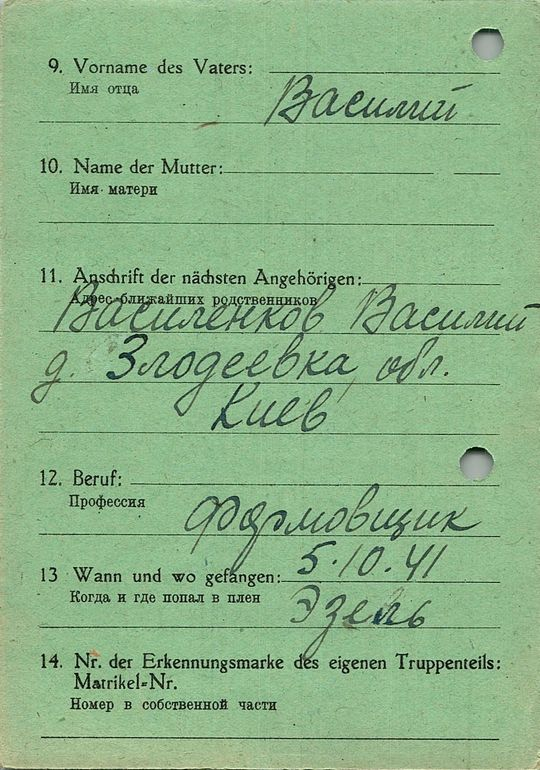 9. Vorname des Vaters:
Имя отца
Василий
10. Name der Mutter:
Имя матери
11. Anschrift der nächsten Angehörigen:
Адрес ближайших родственников
Василенков Василий
д. Злодеевка, обл.
Киев
12. Beruf:
Профессия
Формовщик
13 Wann und wo gefangen: 5.10.41
Когда и где попал в плен Эзель
14. Nr. der Erkennungsmarke des eigenen Truppenteils:
Matrikel-Nr.
Номер в собственной части